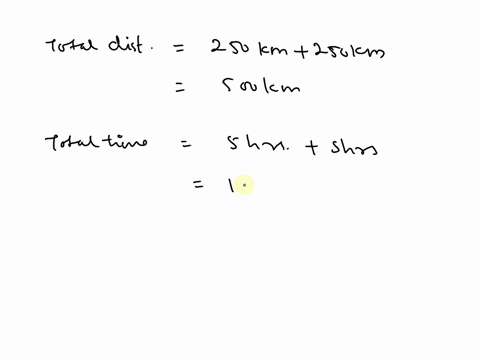 Total dist. = 250 km + 250km
= 500km
Total time = 5 hrs. + 5hrs
= 1